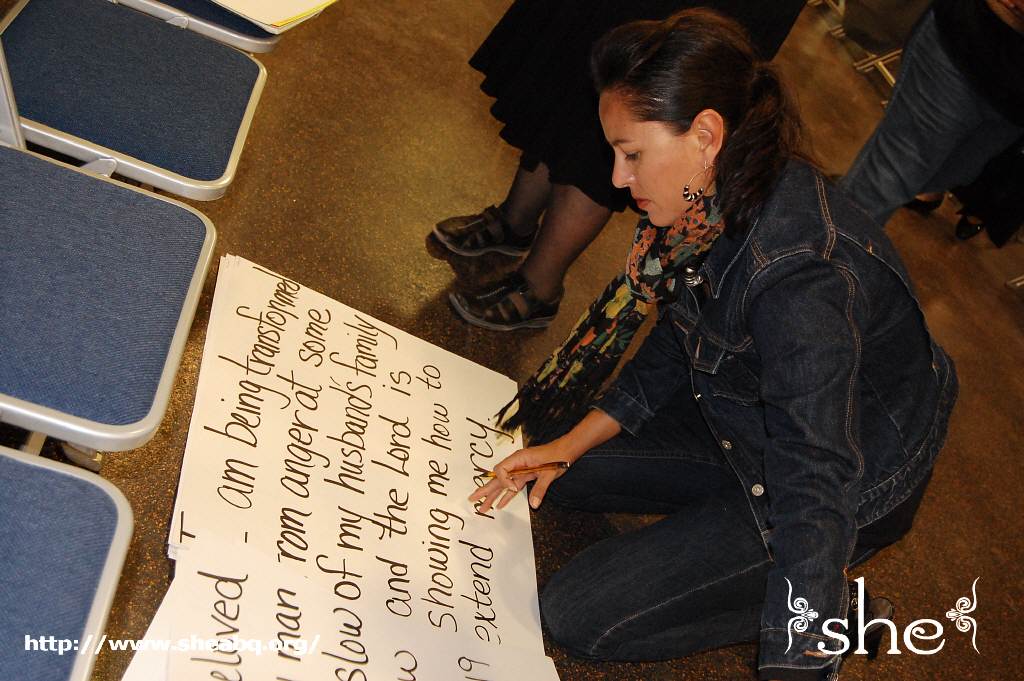 - am being transformed
rom anger at some
of my husband's family
and the Lord is
showing me how to
extend mercy.
man
slow
w
19
http://www.sheabq.org/
she